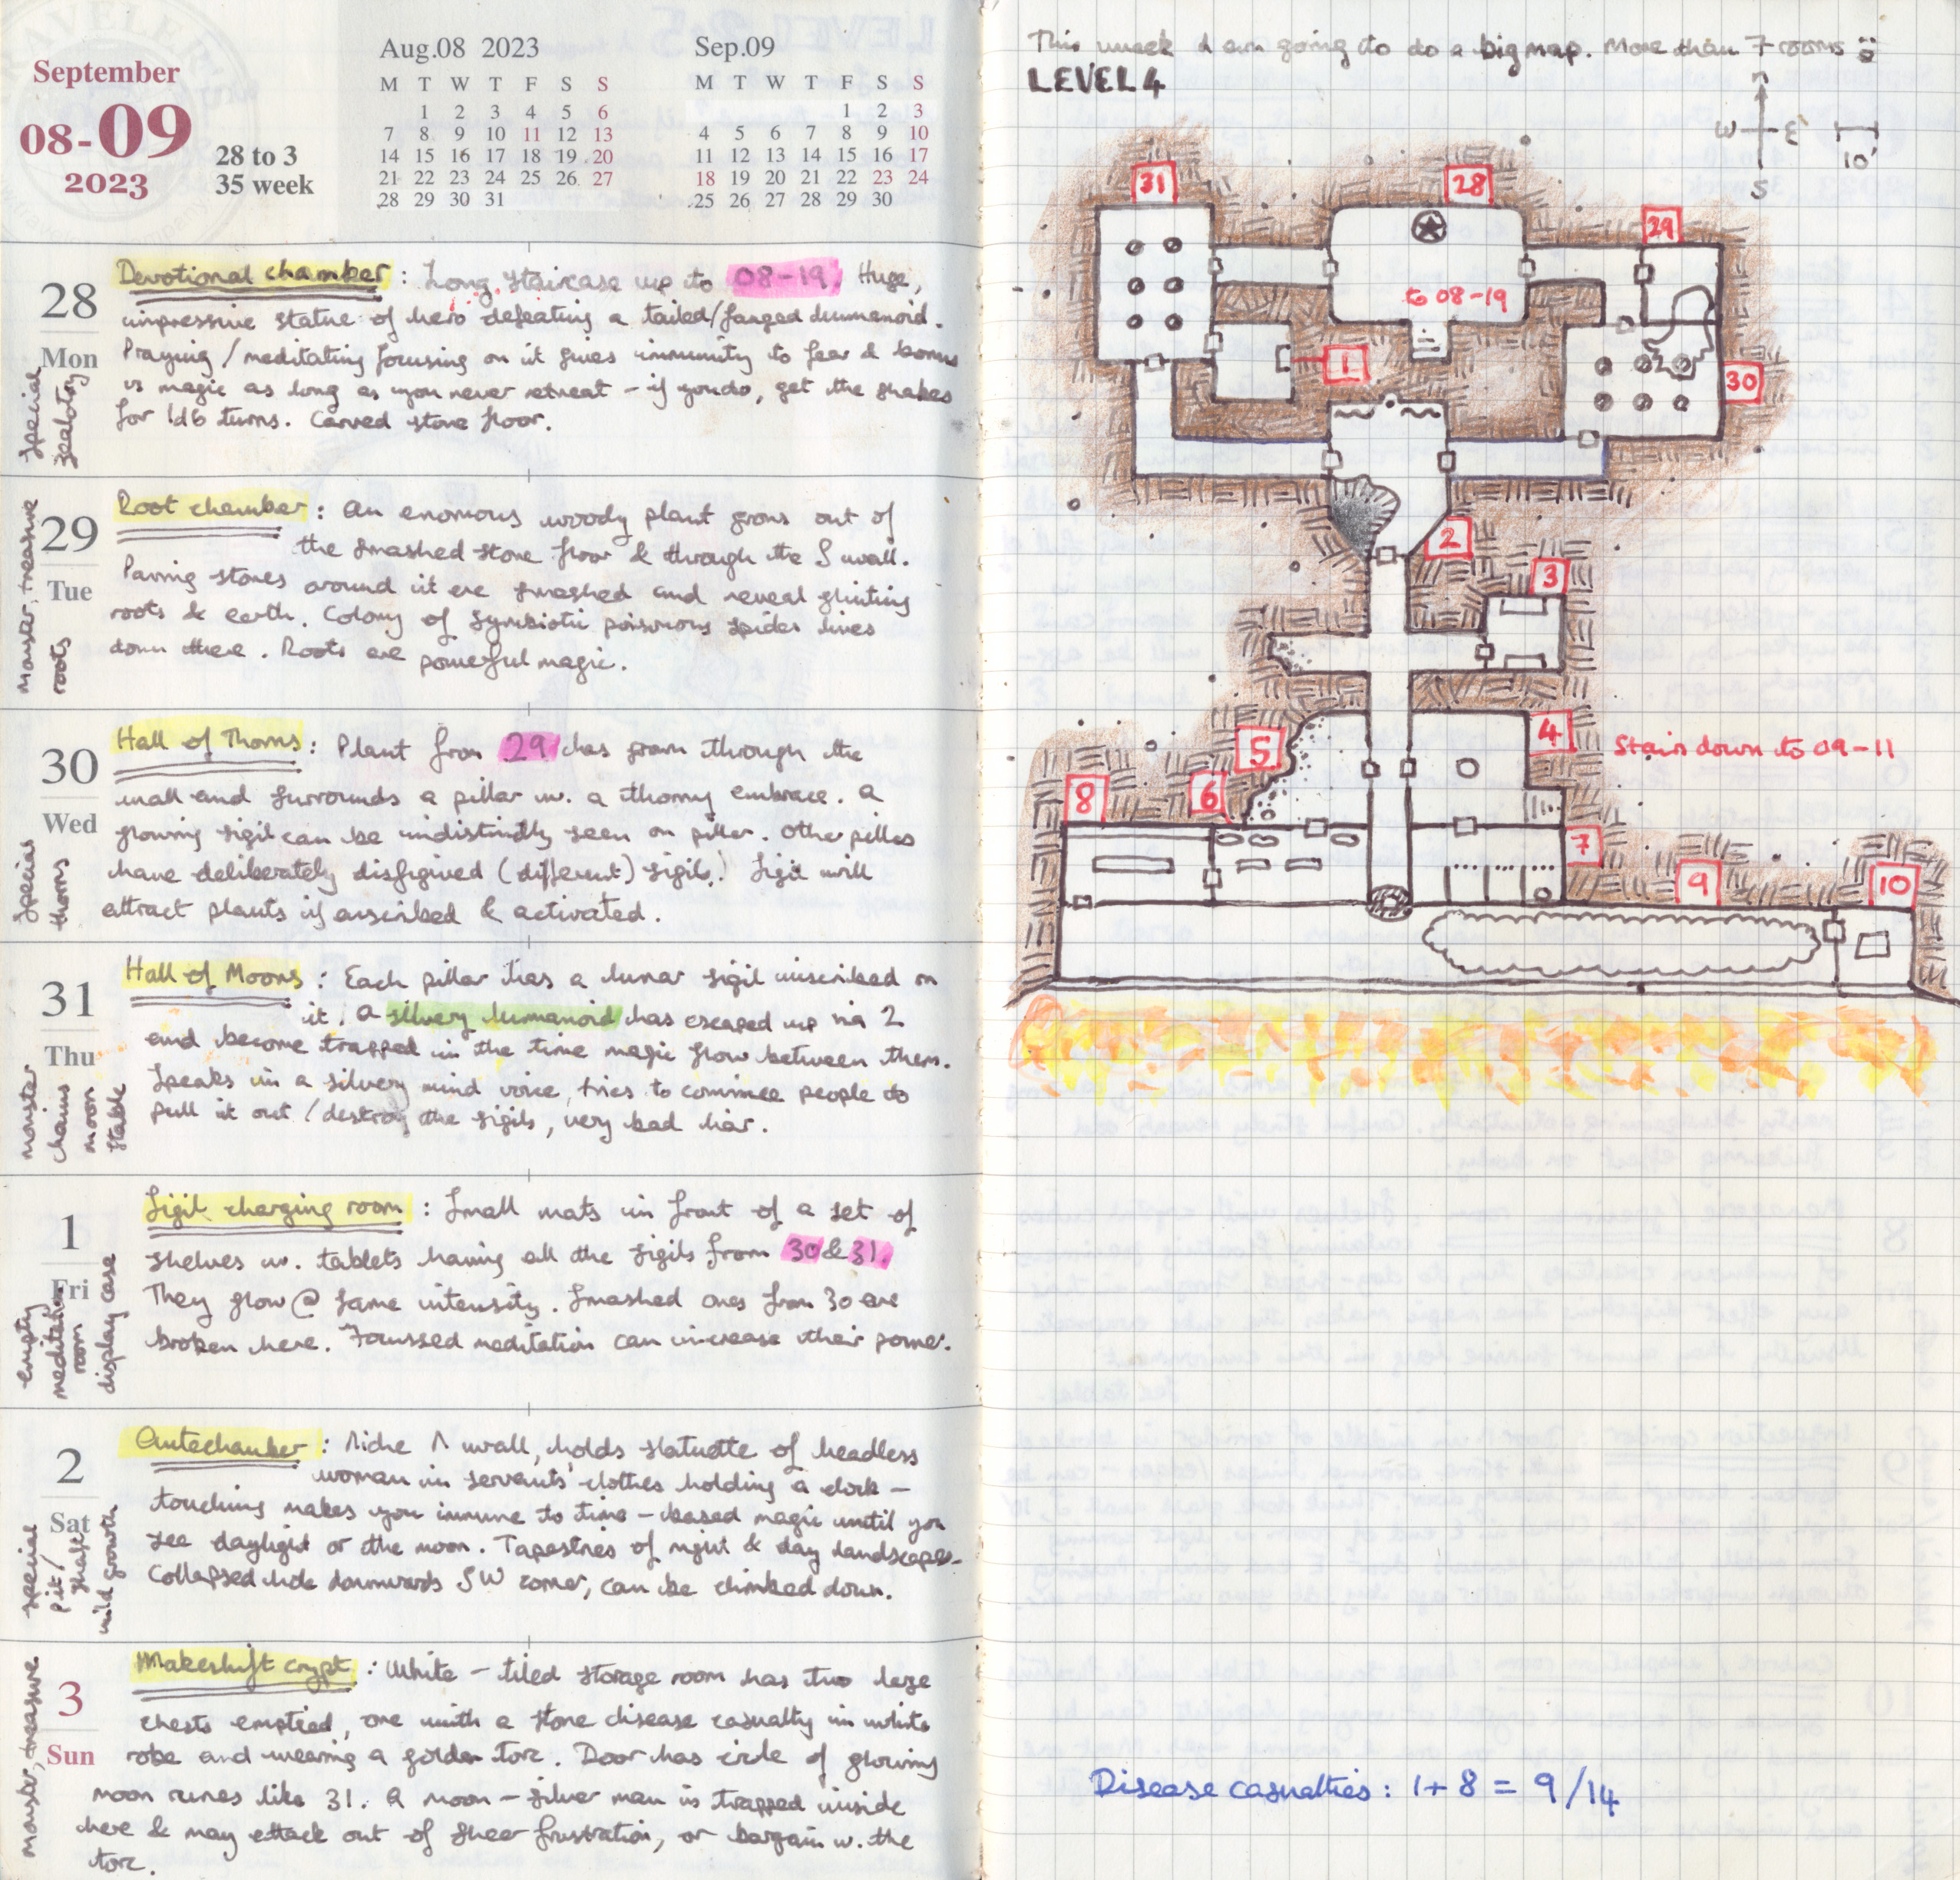 September
08-09
2023
28 to 3
35 week
Aug.08 2023
M T W T F S S
1 2 3 4 5 6
7 8 9 10 11 12 13
14 15 16 17 18 19 20
21 22 23 24 25 26 27
28 29 30 31
Sep.09
M T W T F S S
1 2 3
4 5 6 7 8 9 10
11 12 13 14 15 16 17
18 19 20 21 22 23 24
25 26 27 28 29 30
28
Mon
Special
Devotional chamber: Long staircase up to 08-19. Huge,
impressive statue of hero defeating a tailed/fanged humanoid.
Praying/meditating focusing on it gives immunity to fear & bonus
vs magic as long as you never retreat - if you do, get the shakes
for 1d6 turns. Carved stone floor.
29
Tue
Monster, treasure
roots
Root chamber: An enormous woody plant grows out of
the smashed stone floor & through the S wall.
Paving stones around it are smashed and reveal glinting
roots & earth. Colony of symbiotic poisonous spider lives
down there. Roots are powerful magic.
30
Wed
Special
thorns
Hall of Thorns: Plant from 29 has grown through the
wall and surrounds a pillar w. a thorny embrace. A
glowing sigil can be indistinctly seen on pillar. Other pillars
have deliberately disfigured (different) sigils. Sigil will
attract plants if inscribed & activated.
31
Thu
monster
chains
moon
stable
Hall of Moons: Each pillar has a lunar sigil inscribed on
it. A silvery humanoid has escaped up via 2
and become trapped in the time magic flow between them.
Speaks in a silvery mind voice, tries to convince people to
pull it out/destroy the sigils, very bad liar.
1
Fri
empty
meditation
room
display case
Sigil charging room: Small mats in front of a set of
shelves w. tablets having all the sigils from 30 & 31.
They glow @ same intensity. Smashed ones from 30 are
broken here. Focussed meditation can increase their power.
2
Sat
special
pit/
shaft
wild growth
Antechamber: Niche N wall, holds statuette of headless
woman in servants' clothes holding a clock -
touching makes you immune to time-based magic until you
see daylight or the moon. Tapestries of night & day landscapes.
Collapsed hole downwards SW corner, can be climbed down.
3
Sun
monster, treasure
Makeshift crypt: White-tiled storage room has two large
chests emptied, one with a stone disease casualty in white
robe and wearing a golden torc. Door has circle of glowing
moon runes like 31. A moon-silver man is trapped inside
here & may attack out of sheer frustration, or bargain w. the
torc.
This week I am going to do a big map. More than 7 rooms
LEVEL 4
W E
S
10'
31
28
29
to 08-19
1
30
2
3
4
Stairs down to 09-11
5
6
8
7
9
10
Disease casualties: 1+8 = 9/14